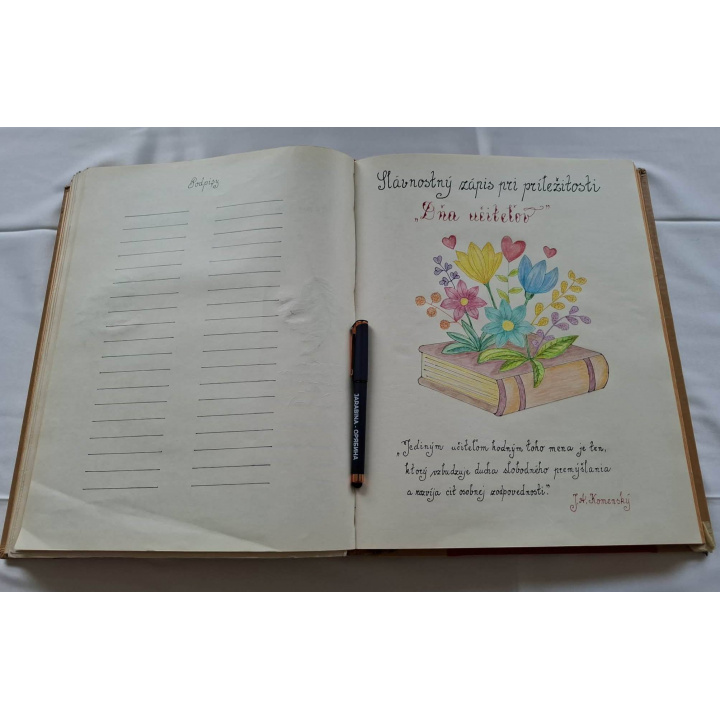 Podpisy
Slávnostný zápis pri príležitosti
„Dňa učiteľov"
JARABINA - ОРЯБИНА
„Jediným učiteľom hodným toho mena je ten,
ktorý vzbudzuje ducha slobodného premýšľania
a rozvíja cit osobnej zodpovednosti."
J.A. Komenský